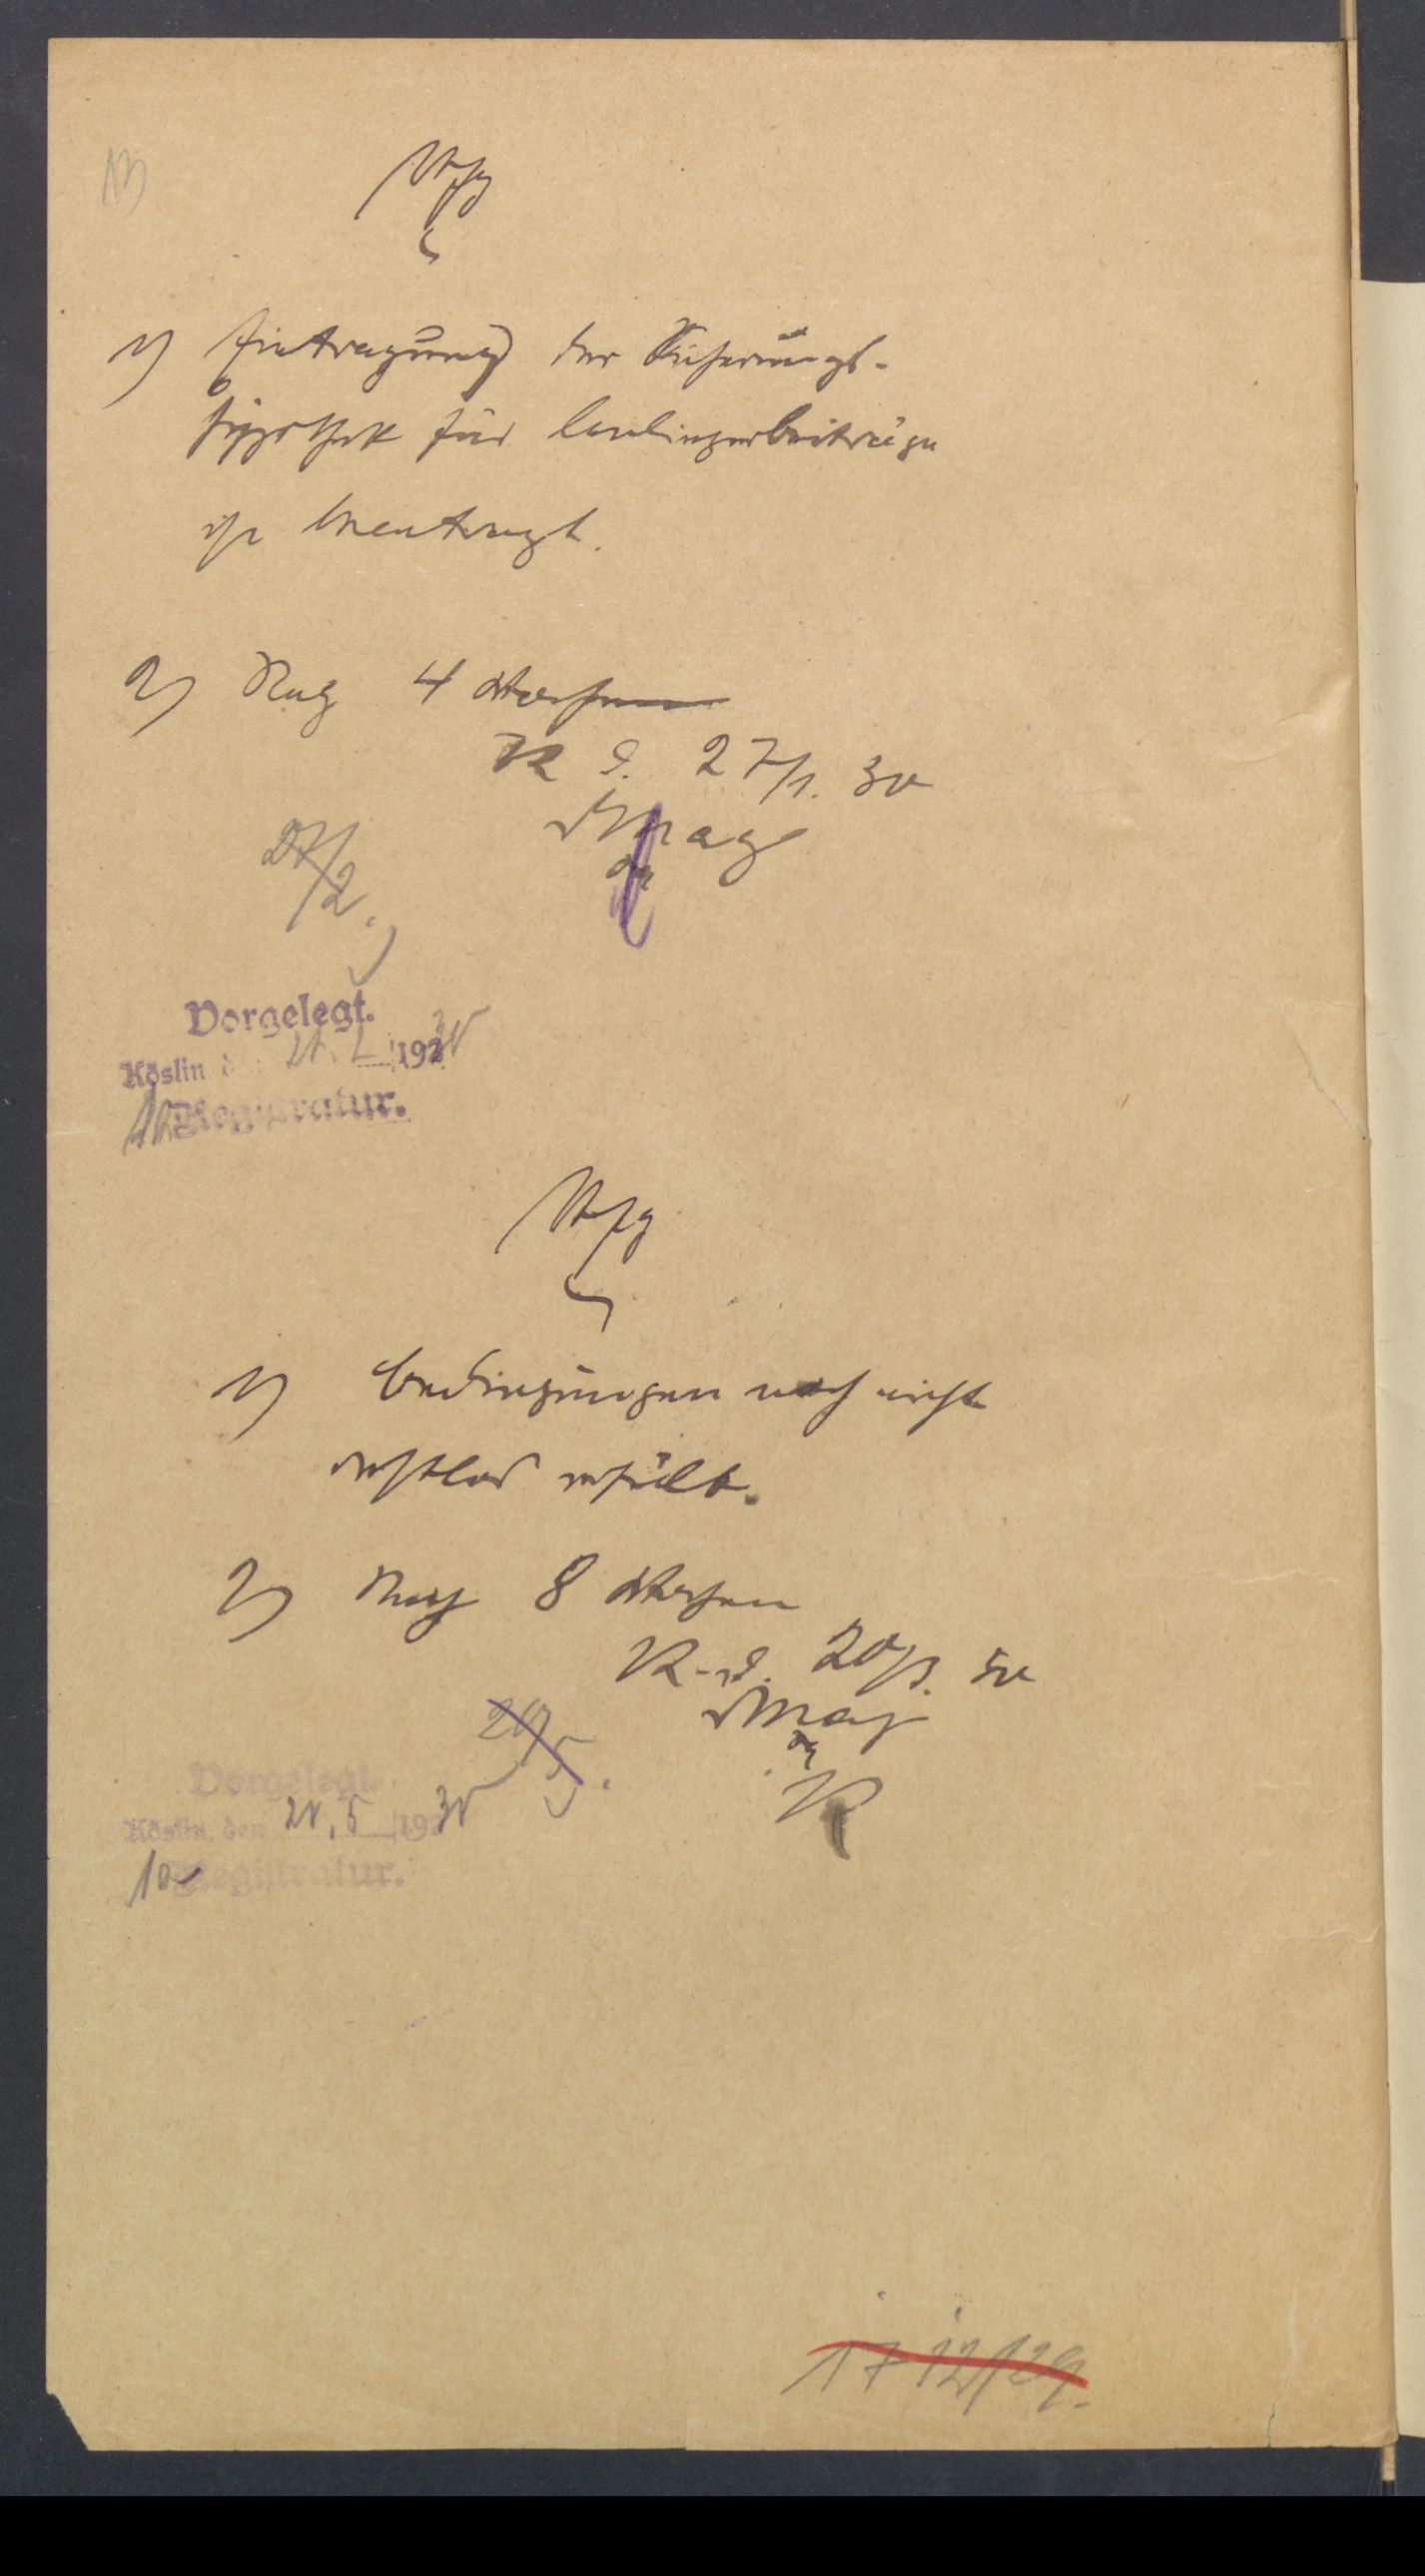 Vfg
1) Eintragung der Sicherungs-
hypothek für Anliegerbeiträge
ist beantragt.
2) Nach 4 Wochen
K d. 27/1. 30
D Mag
27/2.
Vorgelegt.
Köslin den 27. 2. 1930
Registratur.
Vfg
1) Bedingungen noch nicht
restlos erfüllt.
2) Nach 8 Wochen
K. d. 20/3. 30
D Mag
20/5.
Vorgelegt.
Köslin, den 20. 5 1930
Registratur.
17 12/29.